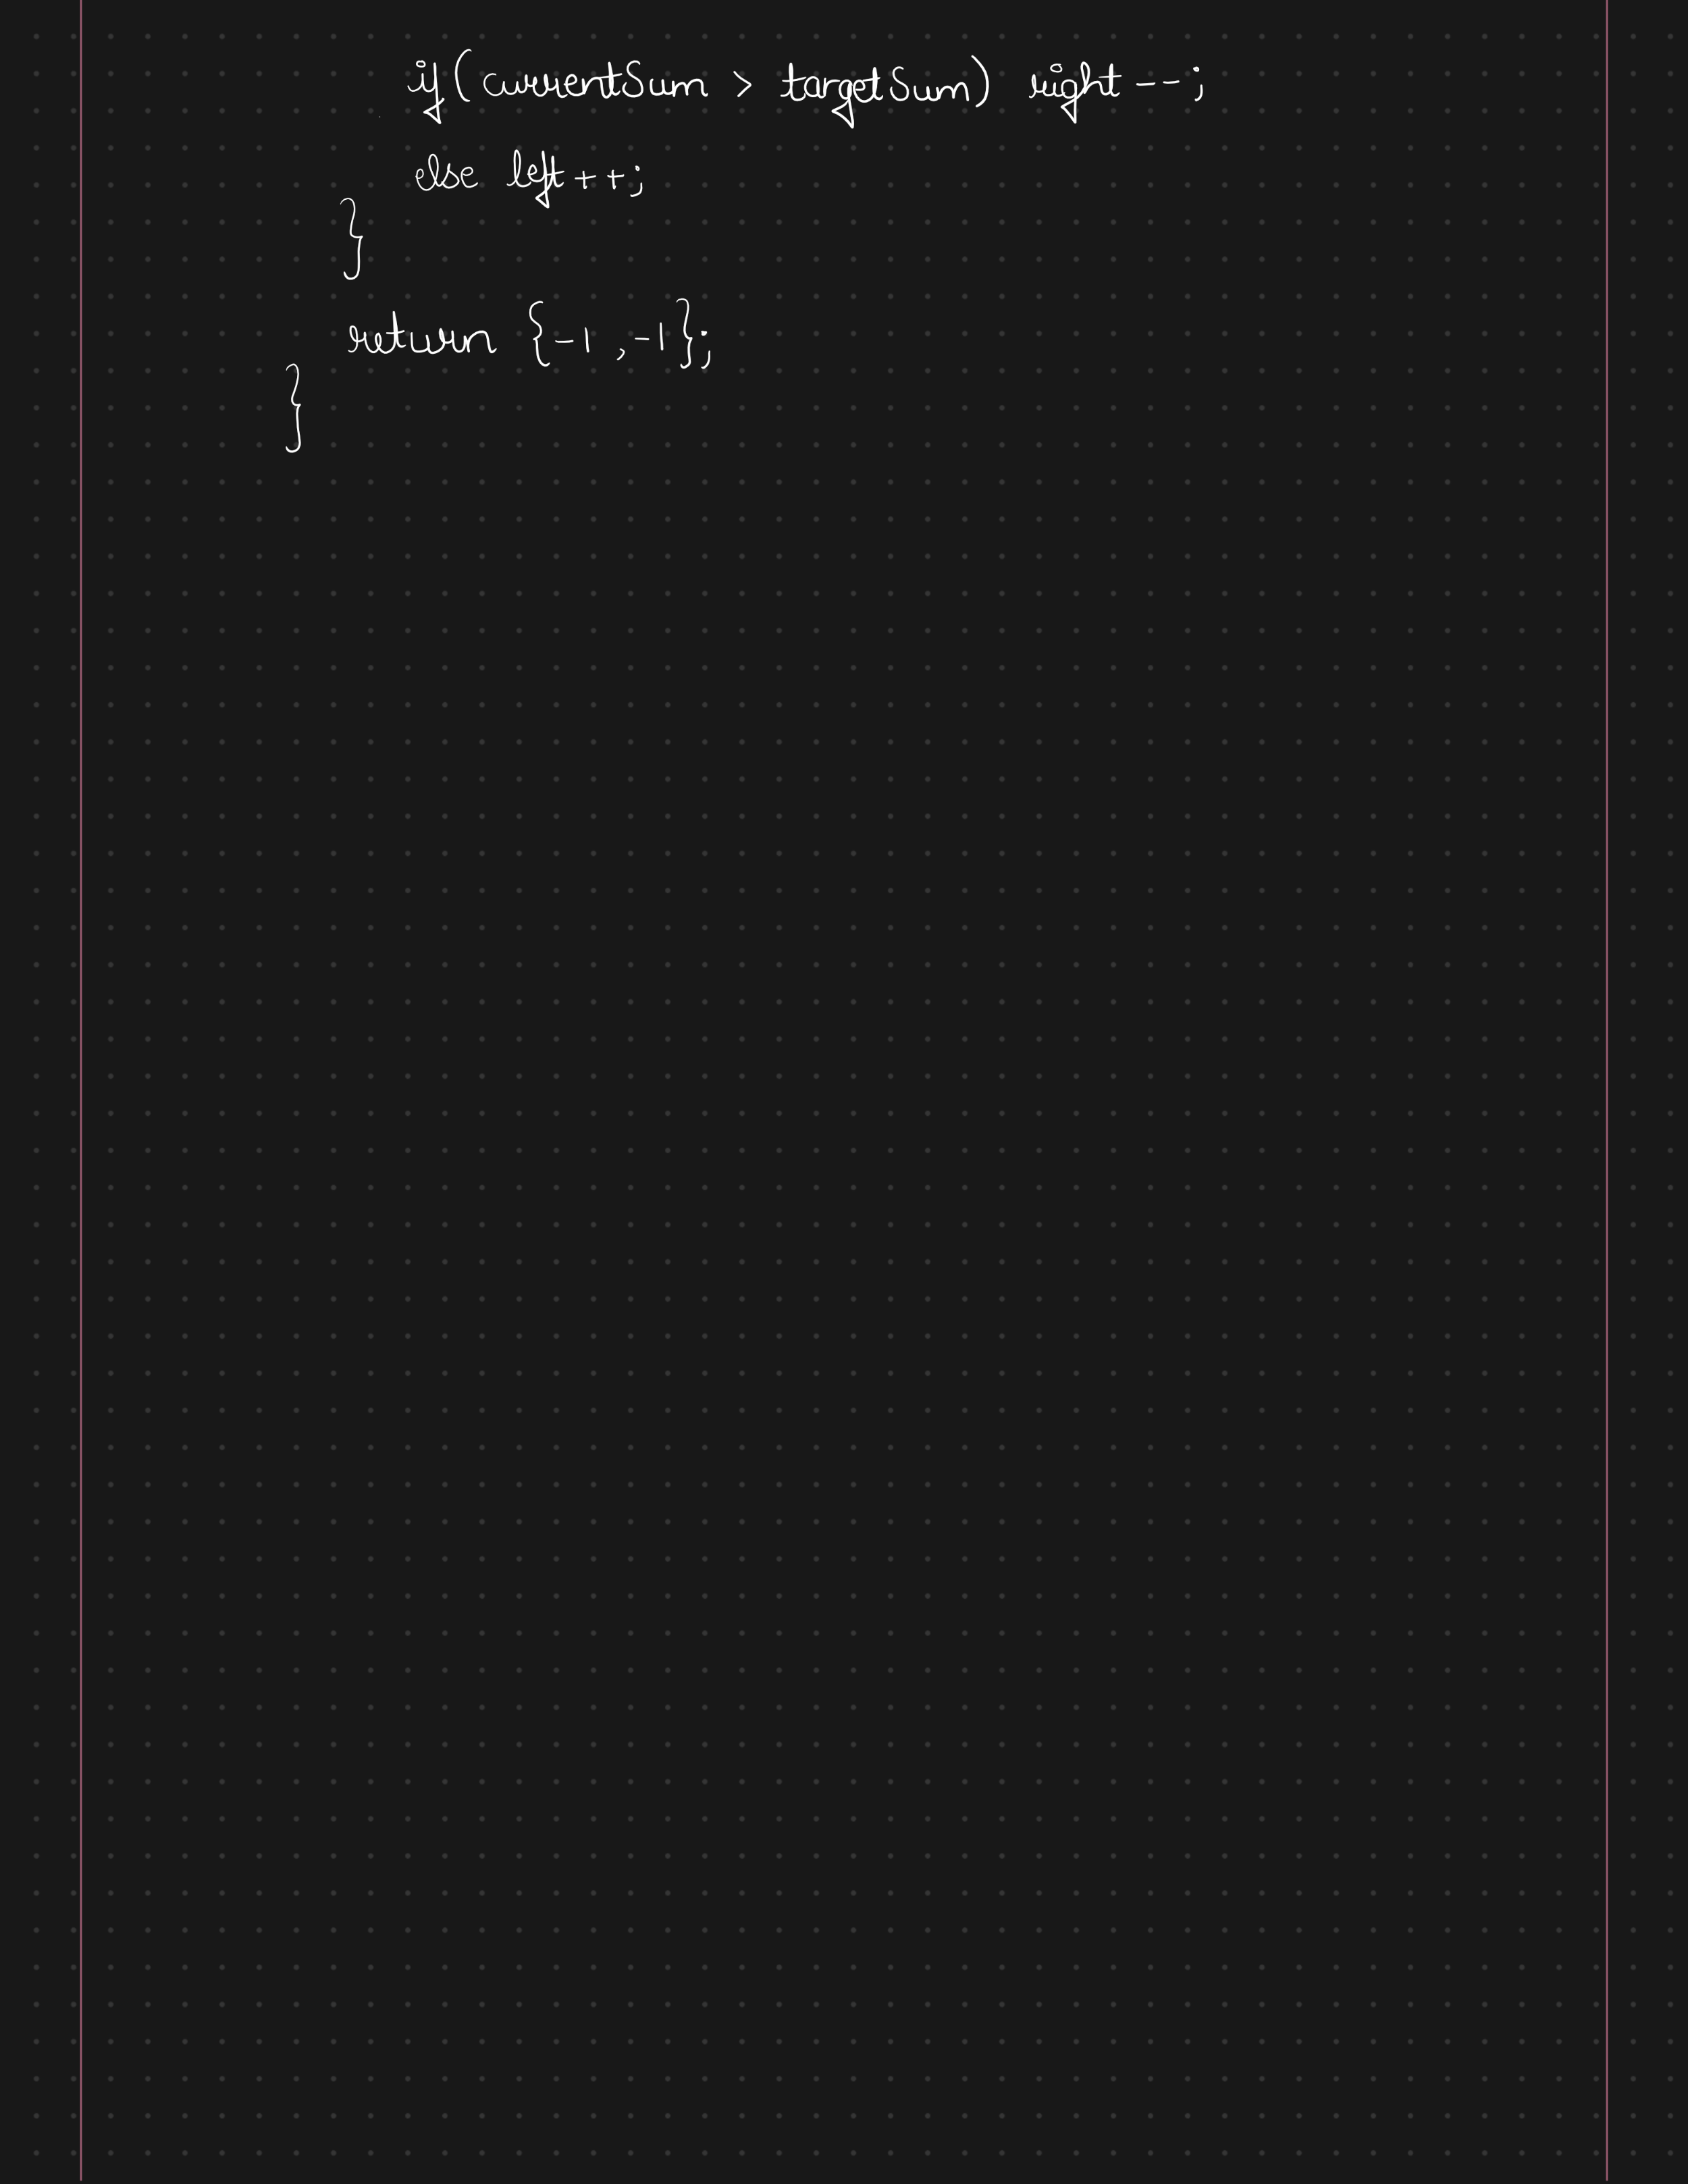 if(currentSum > targetSum) right--;
else left++;
}
return {-1, -1};
}